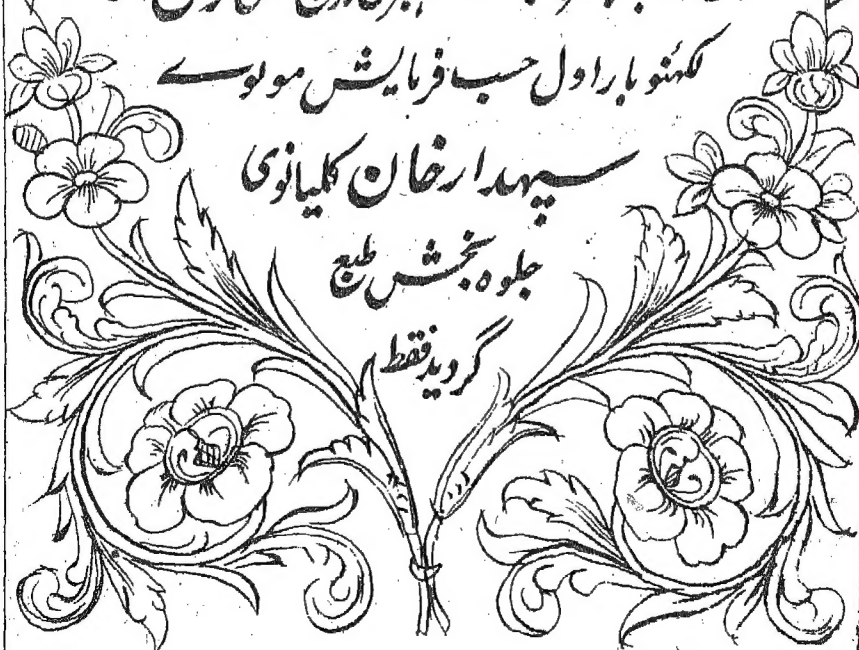 لکھنؤ بار اول حسب فرمایش مولوے
سپهدار خان کلیانوی
جلوه بخش طبع
گردید فقط